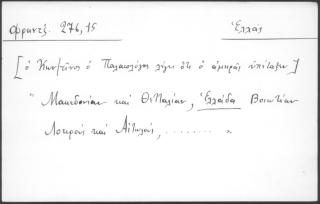 Φραντζ. 276,15 Ἑλλάς
[ὁ Κων/τῖνος ὁ Παλαιολόγος λέγει ὅτι ὁ ἀμηρᾶς ὑπέταξεν]
"Μακεδονίαν καὶ Θετταλίαν, Ἑλλάδα Βοιωτίαν
Λοκροὺς καὶ Αἰτωλούς, ......... "